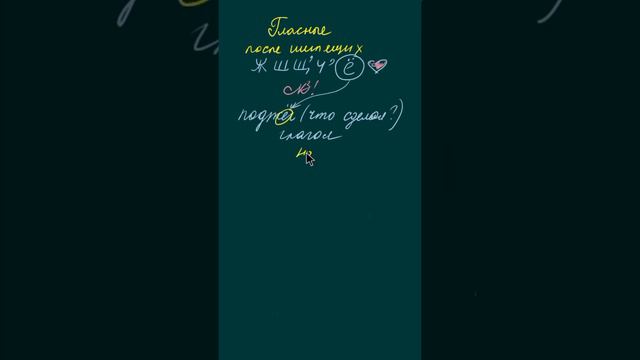 Гласные
после шипящих
Ж Ш Щ' Ч' Ё
НО!
поджёг (что сделал?)
глагол
но